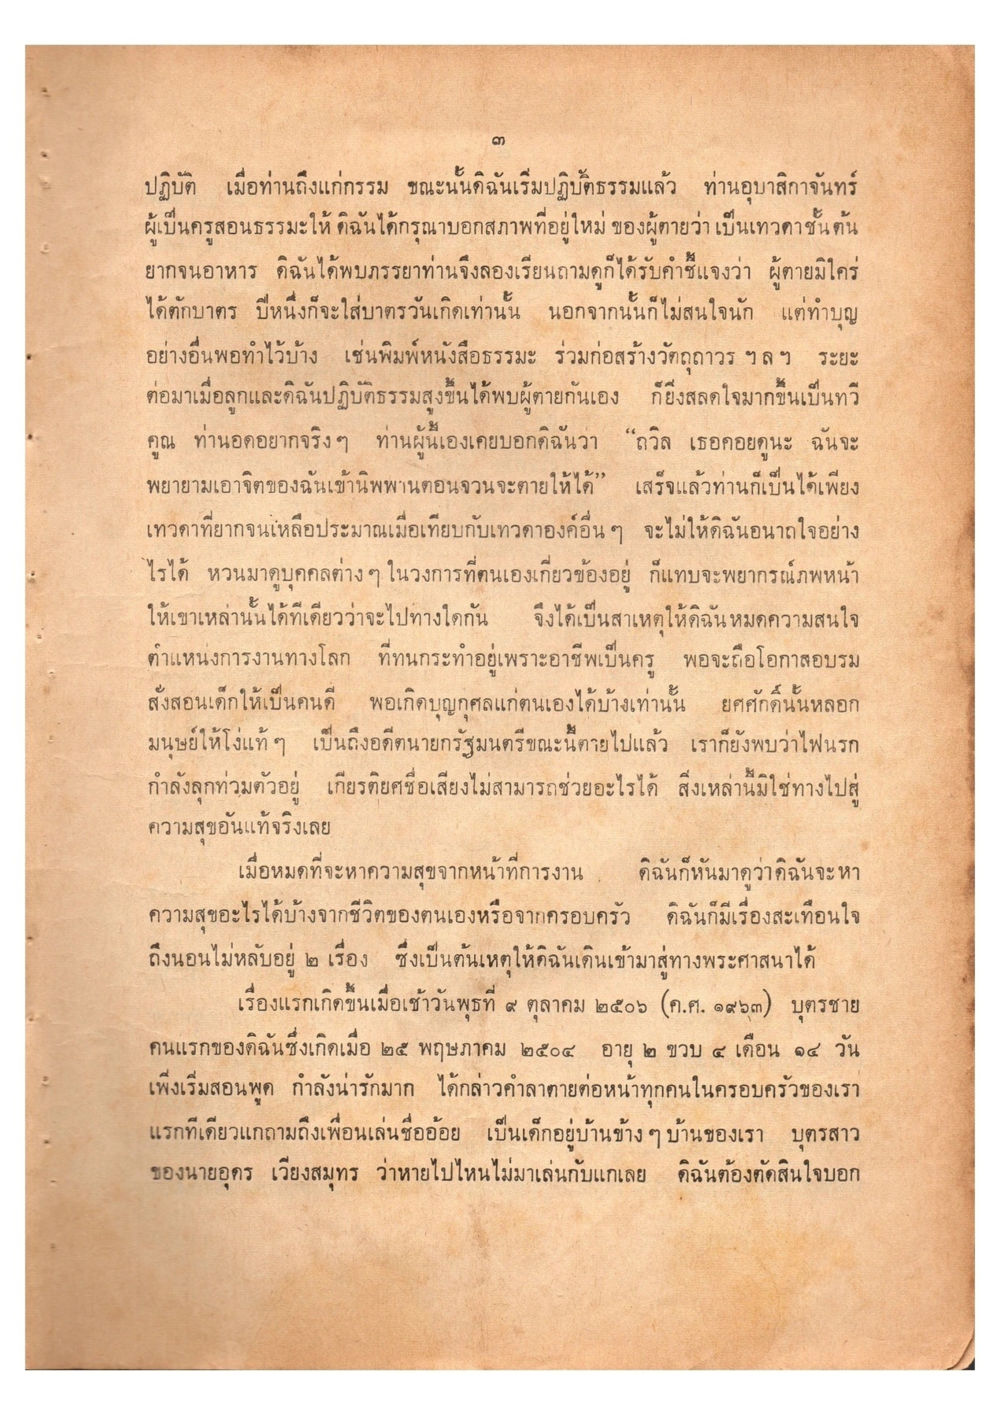 ๓
ปฏิบัติ เมื่อท่านถึงแก่กรรม ขณะนั้นดิฉันเริ่มปฏิบัติธรรมแล้ว ท่านอุบาสิกาจันทร์
ผู้เป็นครูสอนธรรมะให้ ดิฉันได้กรุณาบอกสภาพที่อยู่ใหม่ ของผู้ตายว่า เป็นเทวดาชั้นต้น
ยากจนอาหาร ดิฉันได้พบภรรยาท่านจึงลองเรียนถามดูก็ได้รับคำชี้แจงว่า ผู้ตายมิใคร่
ได้ตักบาตร ปีหนึ่งก็จะใส่บาตรวันเกิดเท่านั้น นอกจากนั้นก็ไม่สนใจนัก แต่ทำบุญ
อย่างอื่นพอทำไว้บ้าง เช่นพิมพ์หนังสือธรรมะ ร่วมก่อสร้างวัตถุถาวร ฯ ล ฯ ระยะ
ต่อมาเมื่อลูกและดิฉันปฏิบัติธรรมสูงขึ้นได้พบผู้ตายกันเอง ก็ยิ่งสลดใจมากขึ้นเป็นทวี
คูณ ท่านอดอยากจริงๆ ท่านผู้นี้เองเคยบอกดิฉันว่า “ถวิล เธอคอยดูนะ ฉันจะ
พยายามเอาจิตของฉันเข้านิพพานตอนจวนจะตายให้ได้” เสร็จแล้วท่านก็เป็นได้เพียง
เทวดาที่ยากจนเหลือประมาณเมื่อเทียบกับเทวดาองค์อื่น ๆ จะไม่ให้ดิฉันอนาถใจอย่าง
ไรได้ หวนมาดูบุคคลต่าง ๆ ในวงการที่ตนเองเกี่ยวข้องอยู่ ก็แทบจะพยากรณ์ภพหน้า
ให้เขาเหล่านั้นได้ทีเดียวว่าจะไปทางใดกัน จึงได้เป็นสาเหตุให้ดิฉันหมดความสนใจ
ตำแหน่งการงานทางโลก ที่ทนกระทำอยู่เพราะอาชีพเป็นครู พอจะถือโอกาสอบรม
สั่งสอนเด็กให้เป็นคนดี พอเกิดบุญกุศลแก่ตนเองได้บ้างเท่านั้น ยศศักดิ์นั้นหลอก
มนุษย์ให้โง่แท้ ๆ เป็นถึงอดีตนายกรัฐมนตรีขณะนี้ตายไปแล้ว เราก็ยังพบว่าไฟนรก
กำลังลุกท่วมตัวอยู่ เกียรติยศชื่อเสียงไม่สามารถช่วยอะไรได้ สิ่งเหล่านี้มิใช่ทางไปสู่
ความสุขอันแท้จริงเลย
เมื่อหมดที่จะหาความสุขจากหน้าที่การงาน ดิฉันก็หันมาดูว่าดิฉันจะหา
ความสุขอะไรได้บ้างจากชีวิตของตนเองหรือจากครอบครัว ดิฉันก็มีเรื่องสะเทือนใจ
ถึงนอนไม่หลับอยู่ ๒ เรื่อง ซึ่งเป็นต้นเหตุให้ดิฉันเดินเข้ามาสู่ทางพระศาสนาได้
เรื่องแรกเกิดขึ้นเมื่อเช้าวันพุธที่ ๙ ตุลาคม ๒๕๐๖ (ค.ศ. ๑๙๖๓) บุตรชาย
คนแรกของดิฉันซึ่งเกิดเมื่อ ๒๕ พฤษภาคม ๒๕๐๔ อายุ ๒ ขวบ ๔ เดือน ๑๔ วัน
เพิ่งเริ่มสอนพูด กำลังน่ารักมาก ได้กล่าวคำลาตายต่อหน้าทุกคนในครอบครัวของเรา
แรกทีเดียวแกถามถึงเพื่อนเล่นชื่ออ้อย เป็นเด็กอยู่บ้านข้าง ๆ บ้านของเรา บุตรสาว
ของนายอุดร เวียงสมุทร ว่าหายไปไหนไม่มาเล่นกับแกเลย ดิฉันต้องตัดสินใจบอก